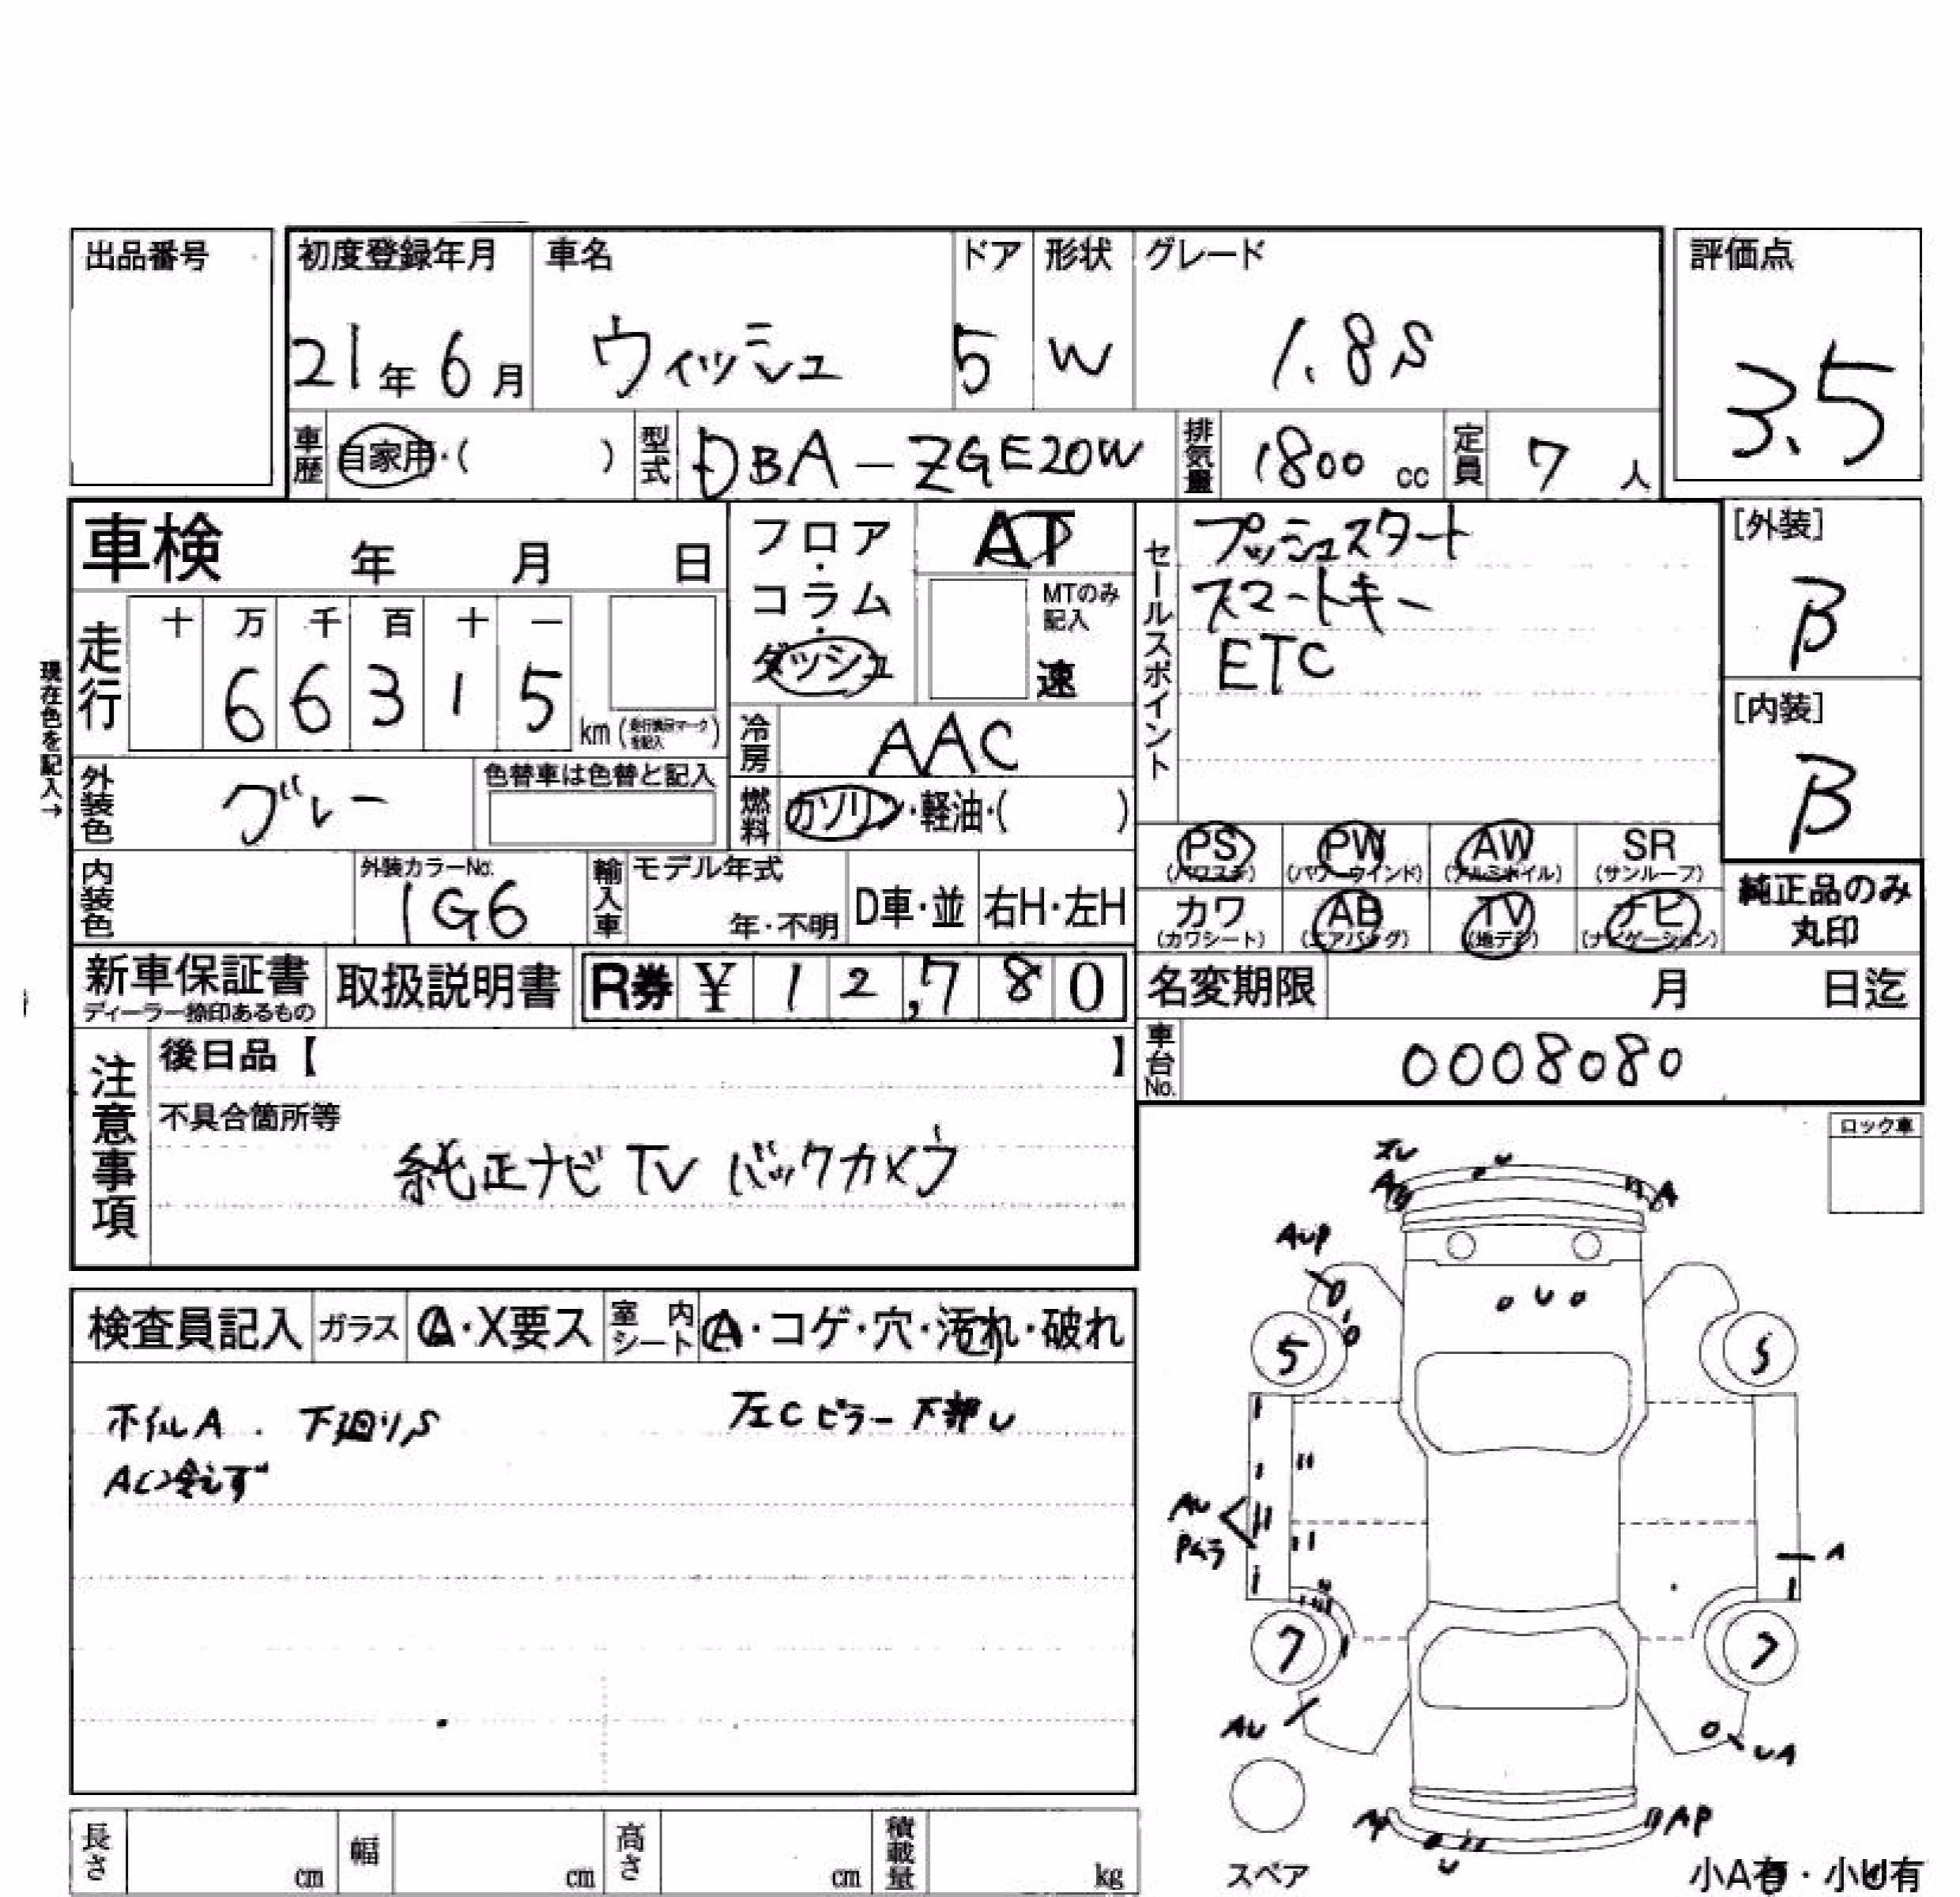 出品番号
初度登録年月 車名 ドア 形状 グレード 評価点
21年6月 ウィッシュ 5 W 1.8S 3.5
車歴 自家用・( ) 型式 DBA-ZGE20W 排気量 1800 cc 定員 7 人
車検 年 月 日
フロア・コラム・ダッシュ
AT
MTのみ記入
速
セールスポイント
プッシュスタート
スマートキー
ETC
[外装]
B
[内装]
B
現在色を記入→
走行 十 万 千 百 十 一
6 6 3 1 5 km
冷房 AAC
外装色 グレー 色替車は色替と記入
燃料 ガソリン・軽油・( )
PS PW AW SR
(パワステ) (パワーウインド) (アルミホイル) (サンルーフ)
カワ AB TV ナビ
(カワシート) (エアバッグ) (地デジ) (ナビゲーション)
純正品のみ
丸印
内装色 外装カラーNo. 1G6 輸入車 モデル年式 年・不明 D車・並 右H・左H
新車保証書 取扱説明書 R券 ¥ 12,780
ディーラー捺印あるもの
名変期限 月 日迄
車台No. 0008080
注意事項
後日品【 】
不具合箇所等
純正ナビ TV バックカメラ
ロック車
検査員記入 ガラス A・X要ス 室内シート A・コゲ・穴・汚れ・破れ
ホイルA. 下廻りS 左Cピラー下部U
AC冷えず
U
A A
AUP
U
5 5
AU
Pムラ
A
7 7
AU
UA
AP
U
スペア
小A有・小U有
長さ cm 幅 cm 高さ cm 積載量 kg